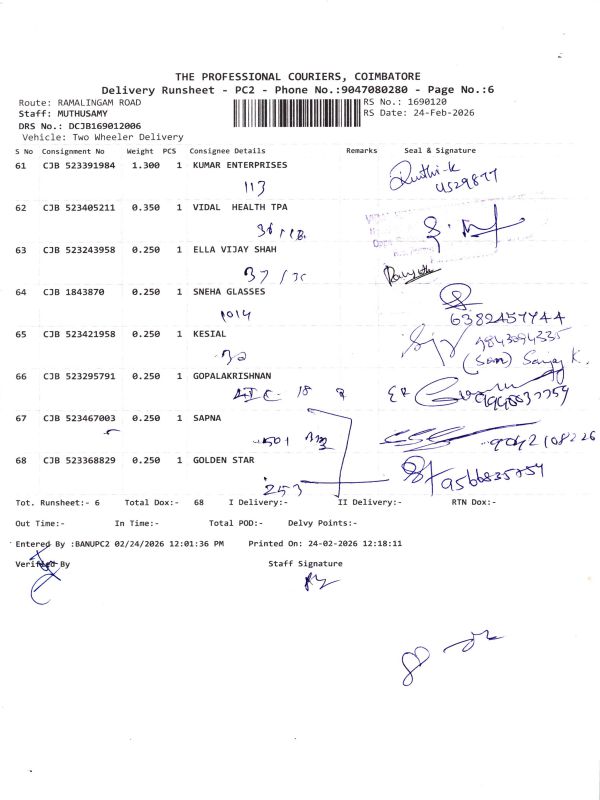 THE PROFESSIONAL COURIERS, COIMBATORE
Delivery Runsheet - PC2 - Phone No.:9047080280 - Page No.:6
Route: RAMALINGAM ROAD
RS No.: 1690120
Staff: MUTHUSAMY
RS Date: 24-Feb-2026
DRS No.: DCJB169012006
Vehicle: Two Wheeler Delivery
S No Consignment No Weight PCS Consignee Details Remarks Seal & Signature
61 CJB 523391984 1.300 1 KUMAR ENTERPRISES
113
62 CJB 523405211 0.350 1 VIDAL HEALTH TPA
63 CJB 523243958 0.250 1 ELLA VIJAY SHAH
37 / 35
64 CJB 1843870 0.250 1 SNEHA GLASSES
1014 6382457744
65 CJB 523421958 0.250 1 KESIAL
30 9843094335
(Son) Sanjay K.
66 CJB 523295791 0.250 1 GOPALAKRISHNAN
18
67 CJB 523467003 0.250 1 SAPNA
501 9042108226
68 CJB 523368829 0.250 1 GOLDEN STAR
253 9566835754
Tot. Runsheet:- 6 Total Dox:- 68 I Delivery:- II Delivery:- RTN Dox:-
Out Time:- In Time:- Total POD:- Delvy Points:-
Entered By :BANUPC2 02/24/2026 12:01:36 PM Printed On: 24-02-2026 12:18:11
Verified By Staff Signature